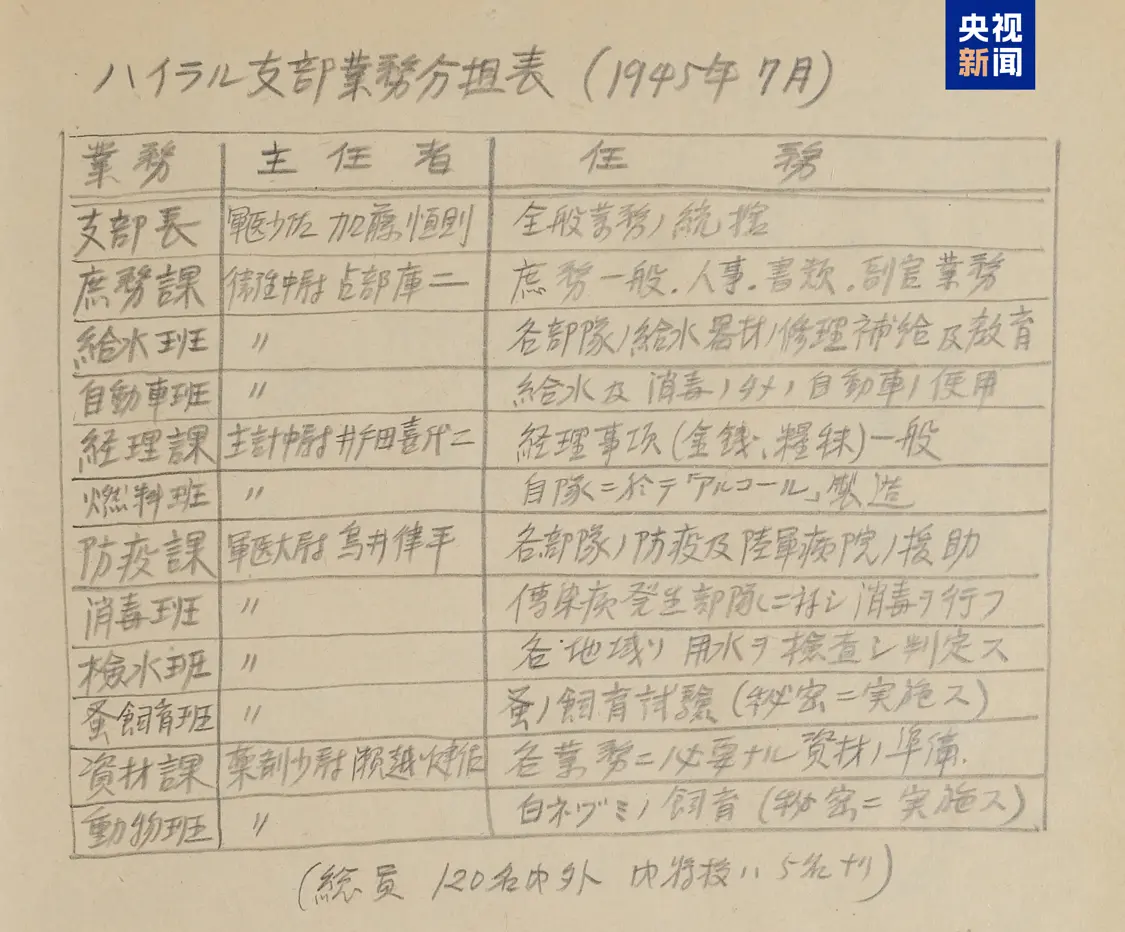 央视
新闻
ハイラル支部業務分担表 (1945年7月)
業務 主任者 任務
支部長 軍医少佐 加藤恒則 全般業務ノ統括
庶務課 衛准中尉 占部庫二 庶務一般.人事.書類.副官業務
給水班 〃 各部隊ノ給水器材ノ修理補給及教育
自動車班 〃 給水及消毒ノタメノ自動車ノ使用
経理課 主計中尉 井戸田喜代二 経理事項(金銭、糧秣)一般
燃料班 〃 自隊ニ於テ「アルコール」製造
防疫課 軍医大尉 鳥井律平 各部隊ノ防疫及陸軍病院ノ援助
消毒班 〃 傳染病発生部隊ニ対シ消毒ヲ行フ
検水班 〃 各地域ノ用水ヲ検査シ判定ス
蚤飼育班 〃 蚤ノ飼育試験(秘密ニ実施ス)
資材課 薬剤少尉 瀬越健佑 各業務ニ必要ナル資材ノ準備.
動物班 〃 白ネヅミノ飼育(秘密ニ実施ス)
(総員 120名内外 内将校ハ5名ナリ)